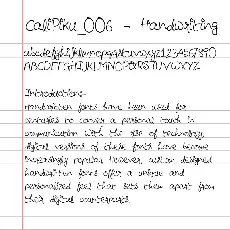 CallPiku_006 - Handwriting
abcdefghijklmnopqrstuvwxyz1234567890
ABCDEFGHIJKLMNOPQRSTUVWXYZ
Introductions:-
Handwritten fonts have been used for
centuries to convey a personal touch in
communication. With the rise of technology,
digital versions of these fonts have become
increasingly popular. However, custom designed
handwritten fonts offer a unique and
personalized feel that sets them apart from
their digital counterparts.